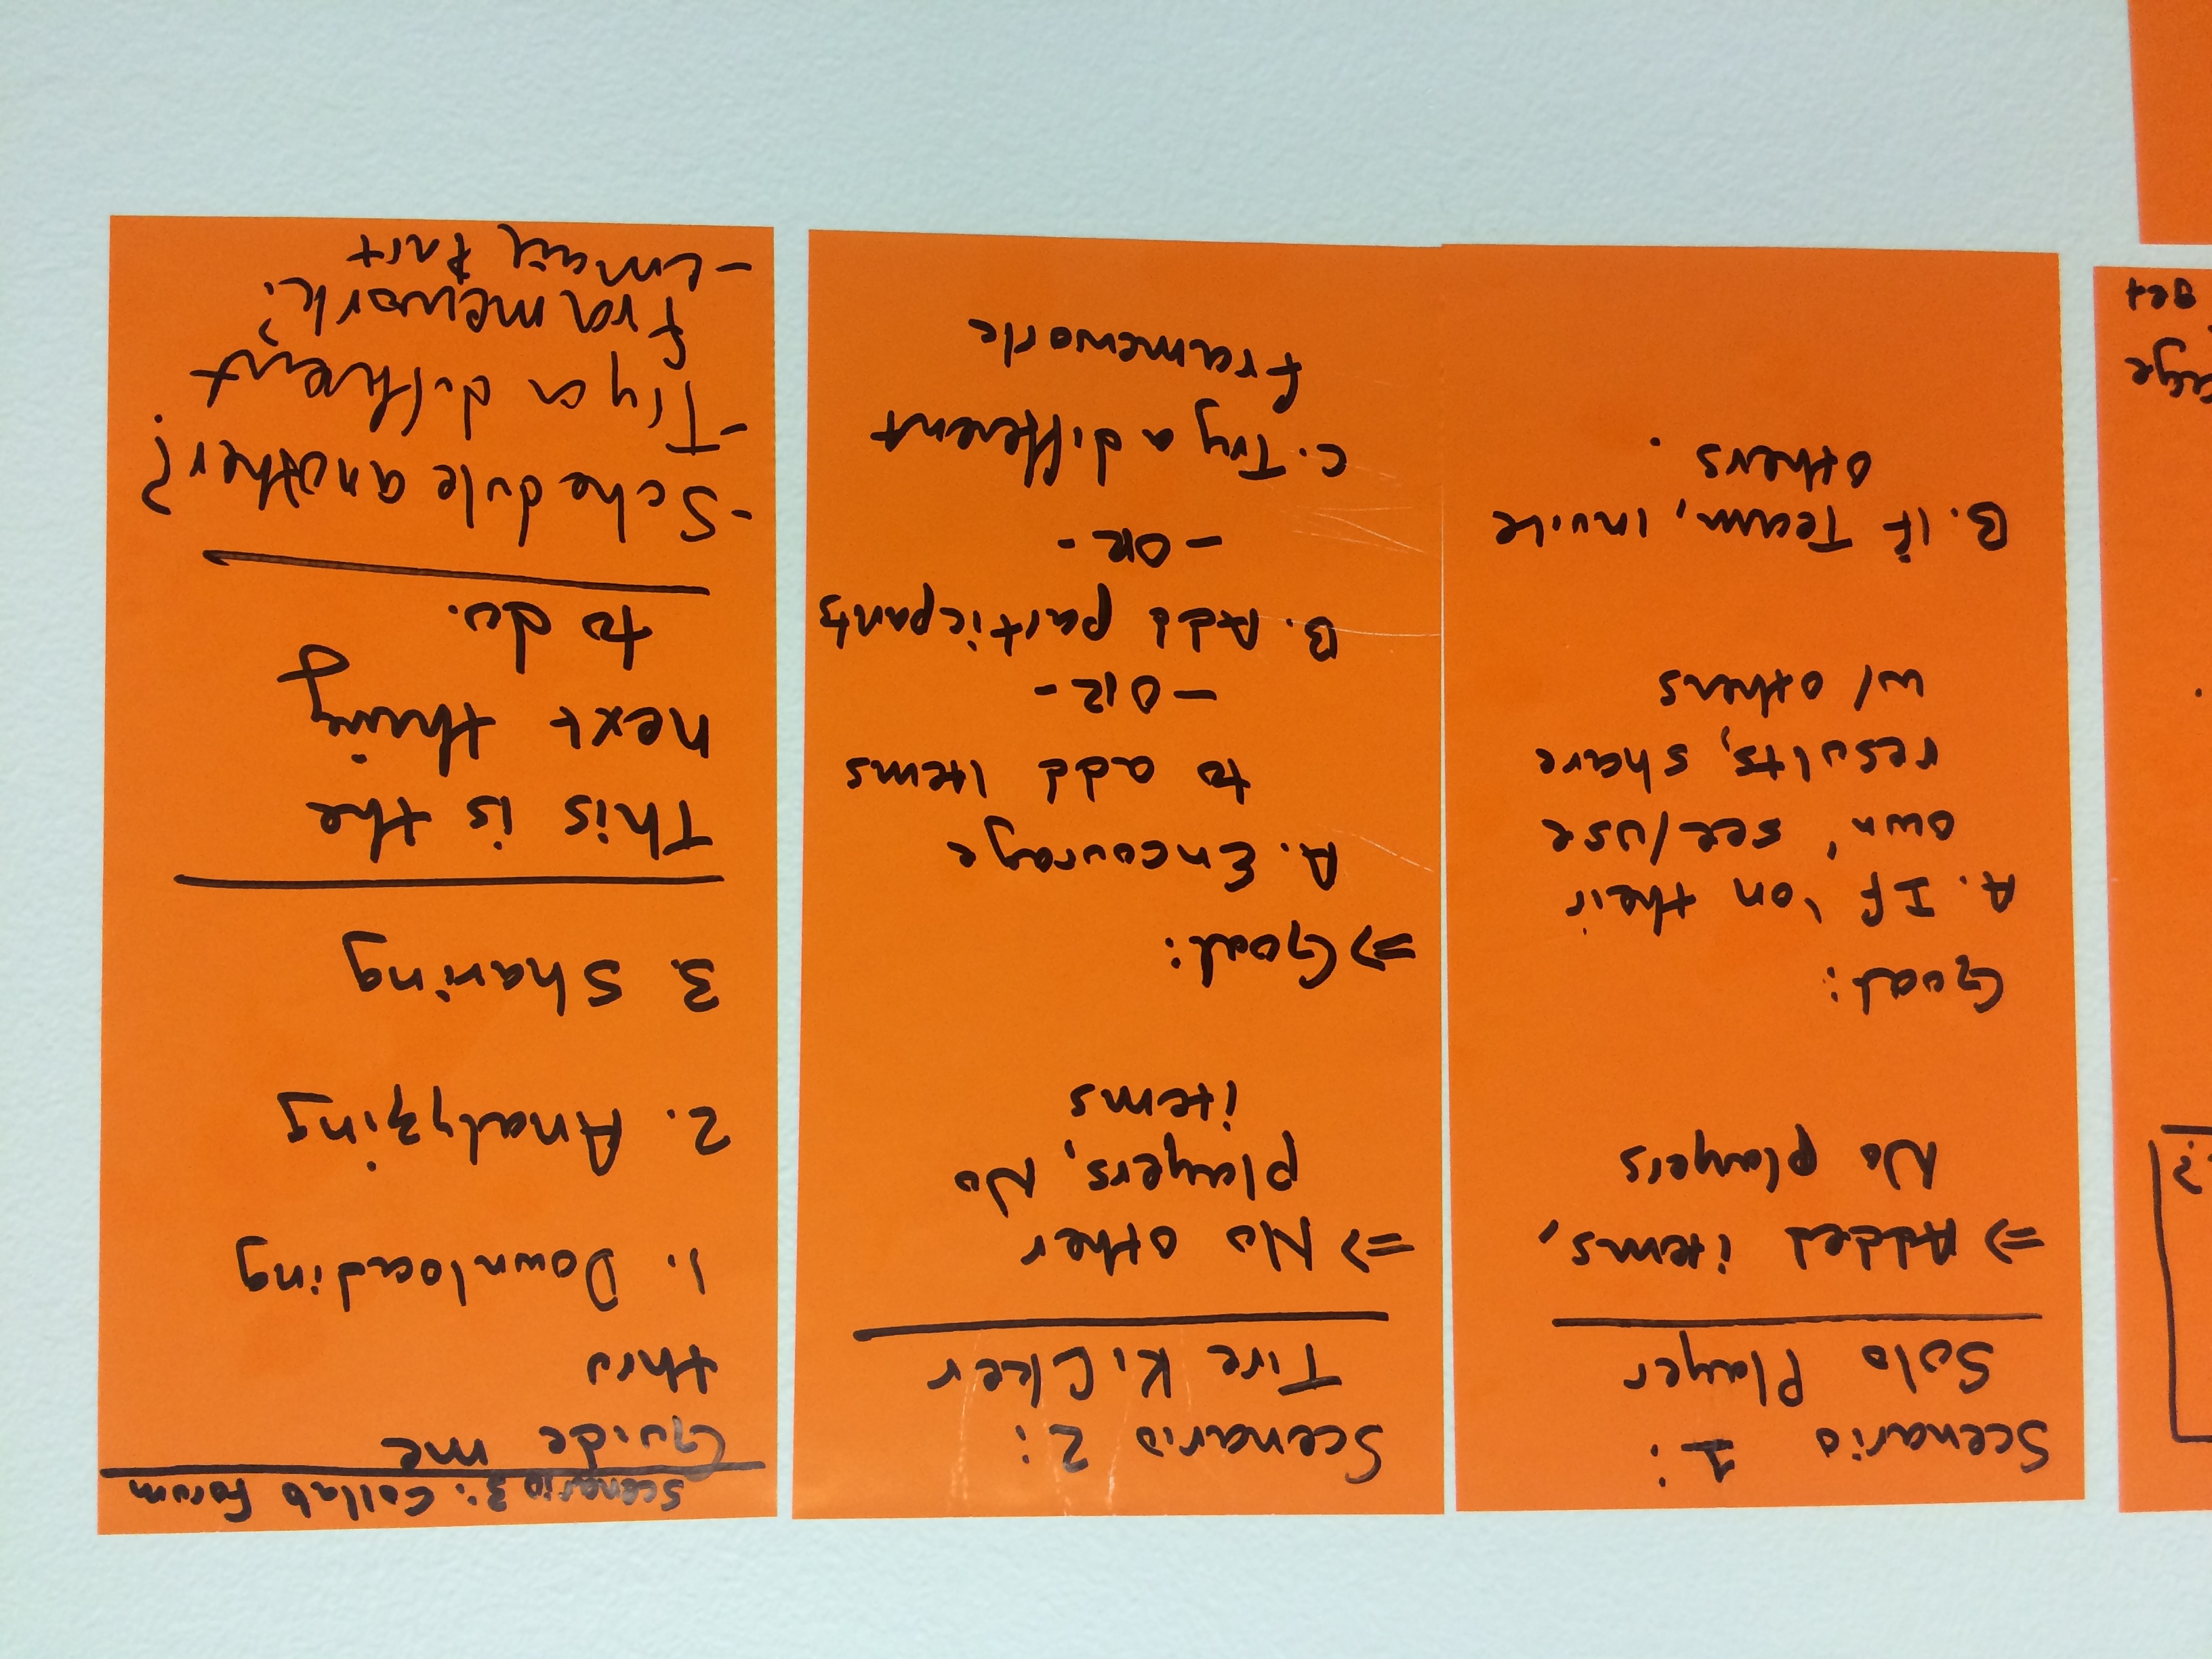 .?
age
get
Scenario 1:
Solo Player
=> Added items,
No players
Goal:
A. If 'on their
own' see/use
results, share
w/ others
B. If Team, invite
others.
Scenario 2:
Tire Kicker
=> No other
players, No
items
=> Goal:
A. Encourage
to add Items
- OR -
B. Add particpants
- OR -
C. Try a different
framework
Scenario 3: Collab Forum
Guide me
thru
1. Downloading
2. Analyzing
3. Sharing
This is the
next thing
to do.
- Schedule another?
- Try a different
framework?
- Email Part